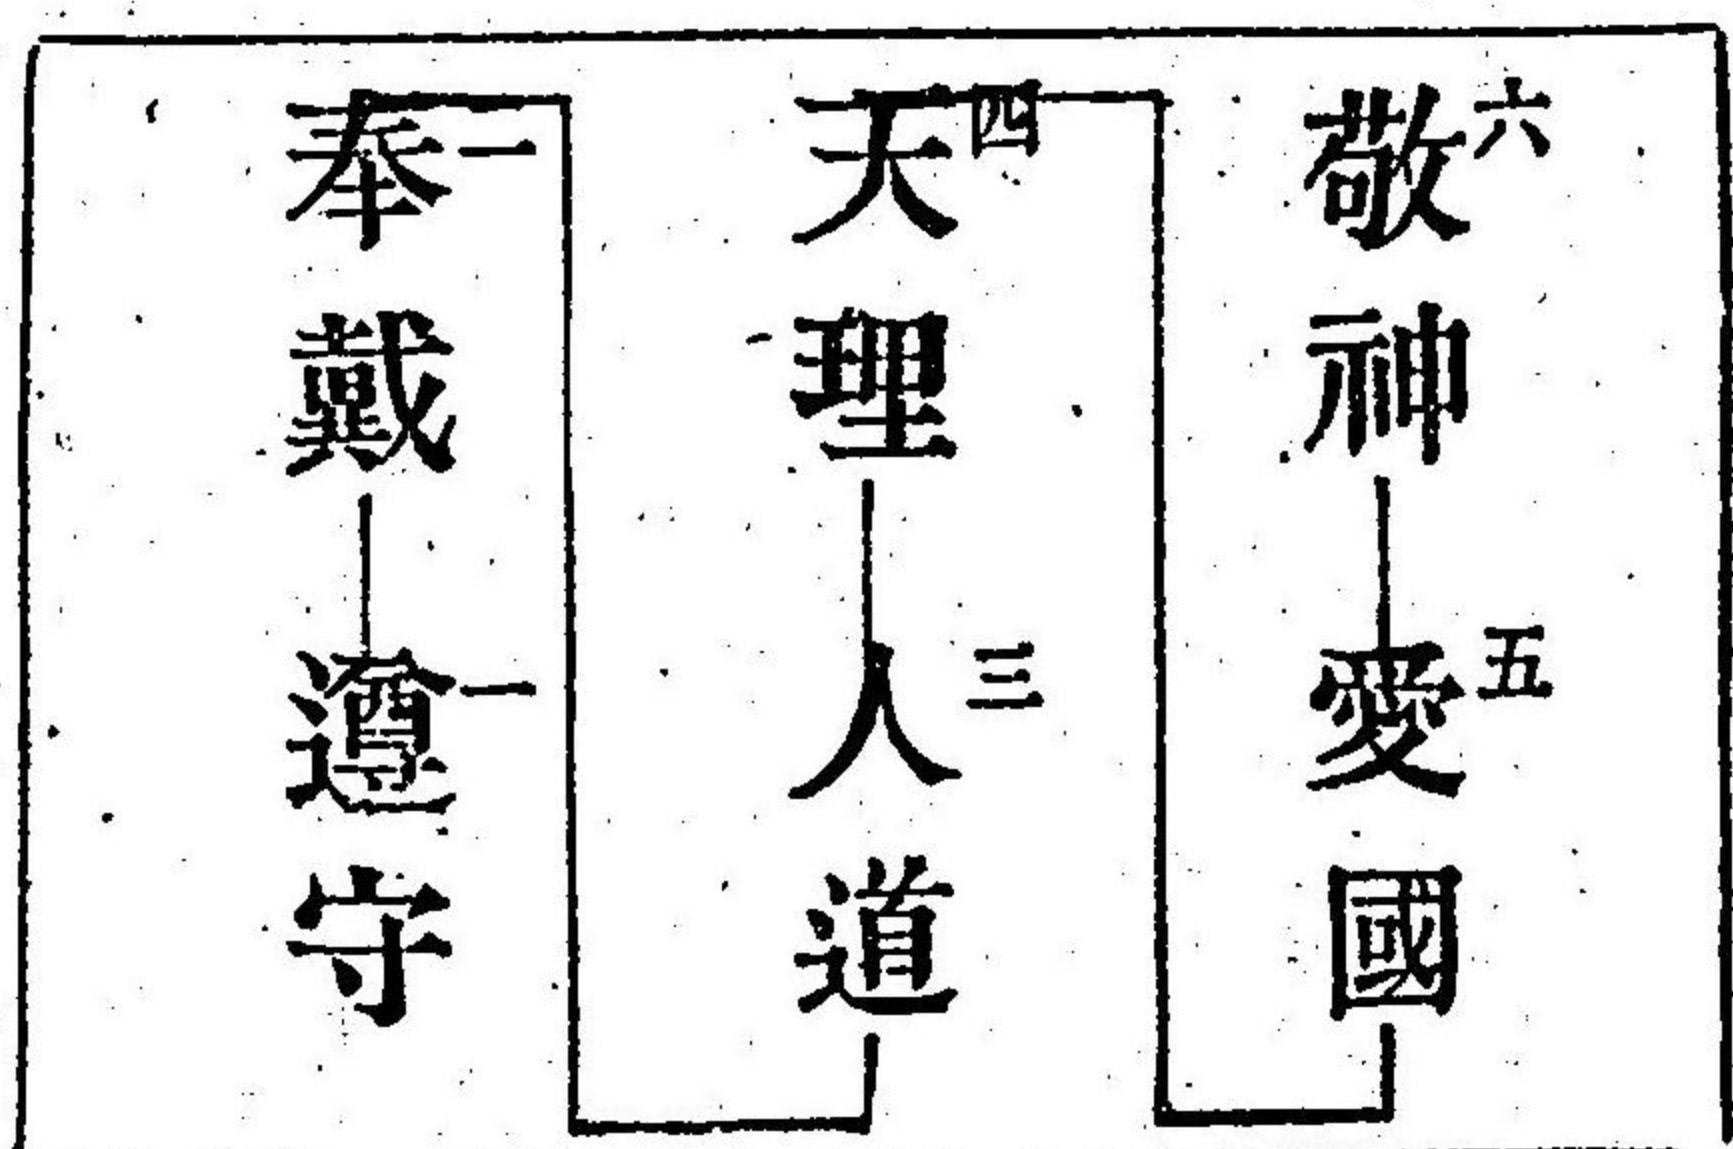 六
敬神
五
愛國
四
天理
三
人道
一
奉戴
一
遵守